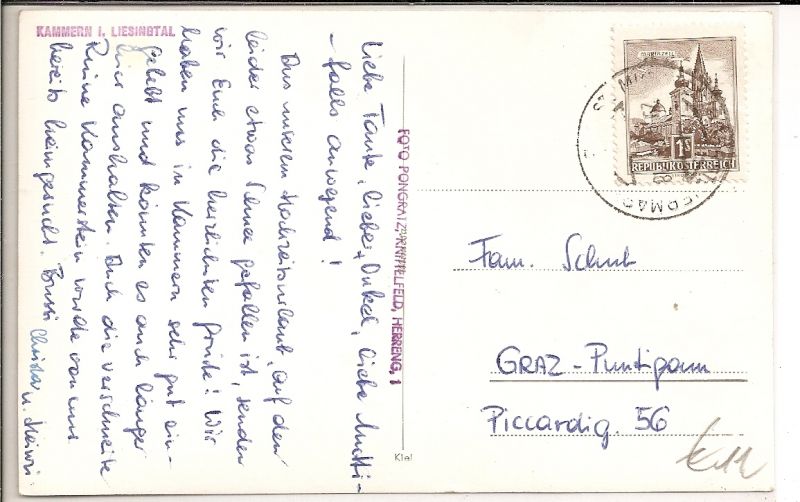 KAMMERN i. LIESINGTAL
Liebe Tante, lieber Onkel, liebe Mutti –
– falls anwesend!
Aus unserem Hochzeitsurlaub, auf den
leider etwas Schnee gefallen ist, senden
wir Euch die herzlichsten Grüße! Wir
haben uns in Kammern sehr gut ein-
gelebt und könnten es auch länger
hier aushalten. Auch die verschneite
Ruine Kammerstein wurde von uns
bereits heimgesucht. Bussi Christa u. Heinz
FOTO PONGRATZ, KNITTELFELD, HERRENG, 1
Kiel
MARIAZELL
1S
REPUBLIK ÖSTERREICH
Fam. Schub
GRAZ - Puntigam
Piccardig. 56